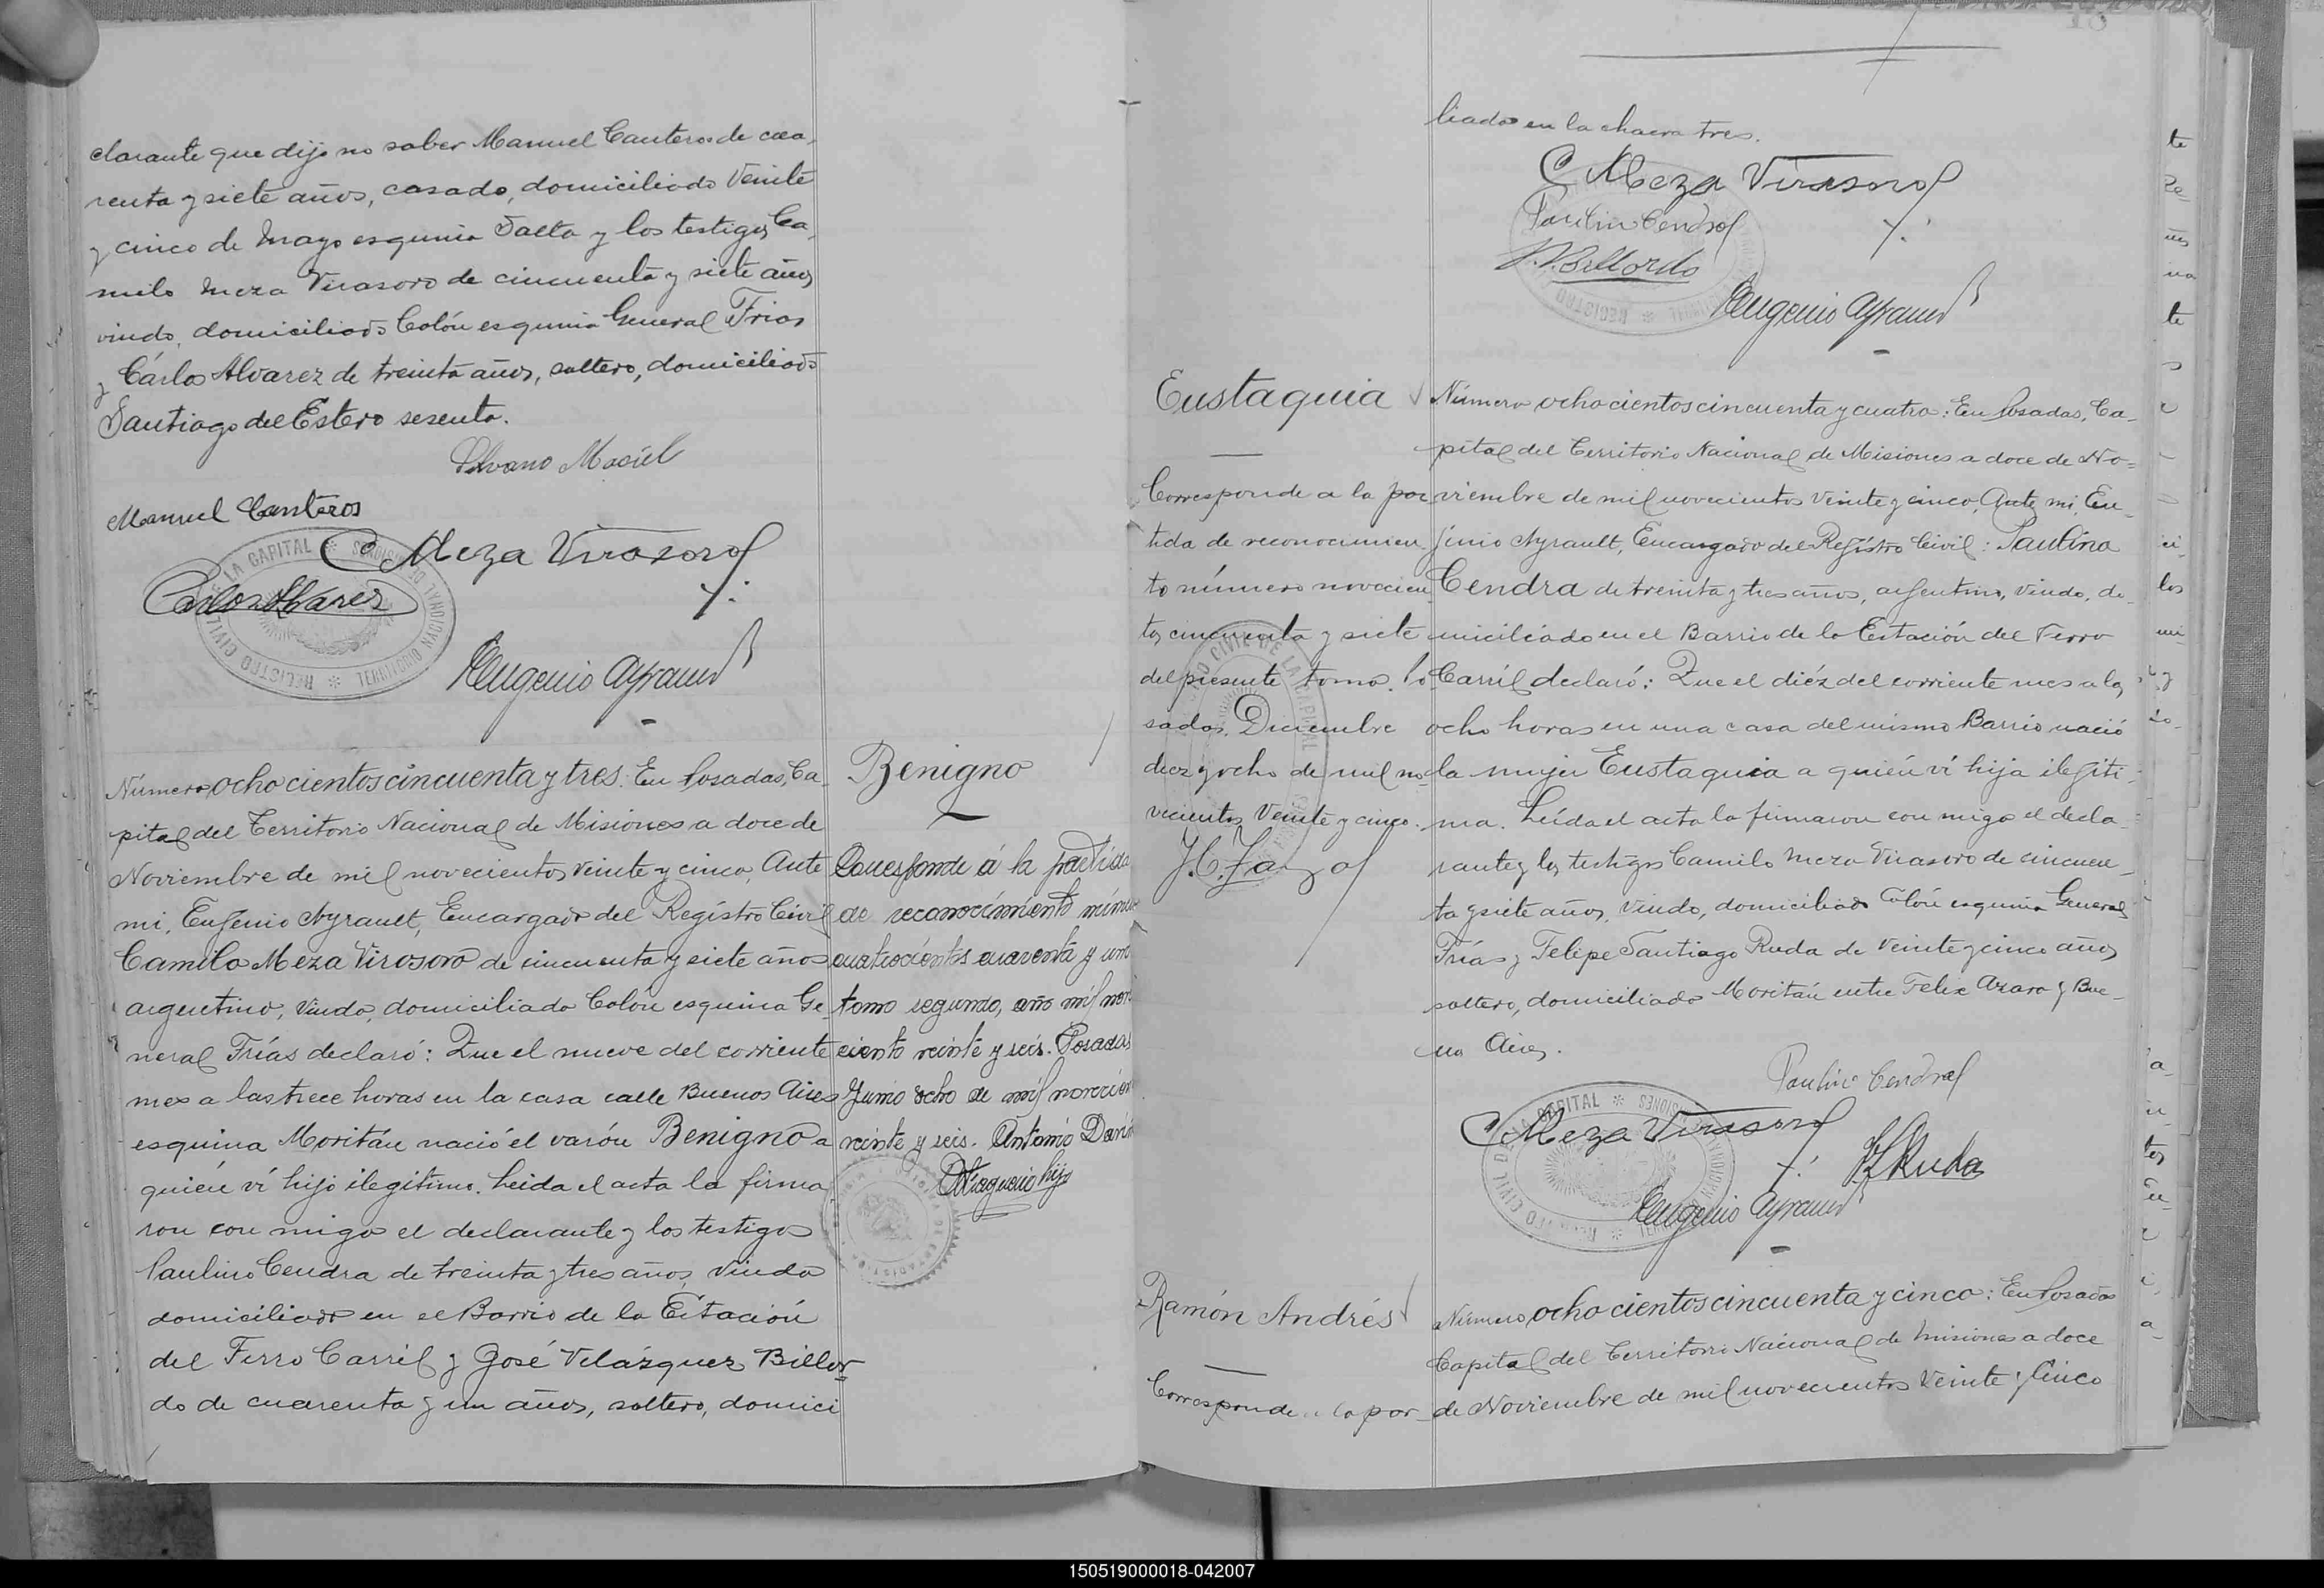 clarante que dijo no saber Manuel Canteros de cua-
renta y siete años, casado, domiciliado Veinte
y cinco de Mayo esquina Salta y los testigos Ca-
milo Meza Virasoro de cincuenta y siete años
viudo, domiciliado Colón esquina General Frias
y Cárlos Alvarez de treinta años, soltero, domiciliado
Santiago del Estero sesenta.
Silvano Maciel
Manuel Canteros
C Meza Virasoro
Carlos Alvarez
Eugenio Ayrault
REGISTRO CIVIL DE LA CAPITAL * TERRITORIO NACIONAL DE MISIONES *
Número ochocientos cincuenta y tres: En Posadas, Ca-
pital del Territorio Nacional de Misiones a doce de
Noviembre de mil novecientos veinte y cinco, Ante
mi, Eugenio Ayrault, Encargado del Registro Civil
Camilo Meza Virosoro de cincuenta y siete años
argentino, viudo, domiciliado Colón esquina Ge-
neral Frías declaró: Que el nueve del corriente
mes a las trece horas en la casa calle Buenos Aires
esquina Moritán nació el varón Benigno a
quién ví hijo ilegitimo. Leida el acta la firma-
ron con migo el declarante y los testigos
Paulino Cendra de treinta y tres años, viudo
domiciliado en el Barrio de la Estación
del Ferro Carril y José Velázquez Billor-
do de cuarenta y un años, soltero, domici
Benigno
Corresponde á la partida
de reconocimiento número
cuatrocientos cuarenta y uno
tomo segundo, año mil nove
ciento veinte y seis. Posadas
Junio ocho de mil novecien
veinte y seis. Antonio Dario
hijo
liado en la chacra tres.
C Meza Virasoro
Paulino Cendra
J.V. Billordo
Eugenio Ayrault
Eustaquia
Corresponde a la par
tida de reconocimien
to número novecien
tos cincuenta y siete
del presente tomo. Po
sadas, Diciembre
diez y ocho de mil no-
vecientos Veinte y cinco.
Número ochocientos cincuenta y cuatro: En Posadas, Ca-
pital del Territorio Nacional de Misiones a doce de No-
viembre de mil novecientos veinte y cinco, Ante mi, Eu-
jinio Ayrault, Encargado del Registro Civil: Paulino
Cendra de treinta y tres años, argentino, viudo, do-
miciliado en el Barrio de la Estación del Ferro
Carril declaró: Que el diéz del corriente mes a las
ocho horas en una casa del mismo Barrio nació
la mujer Eustaquia a quién ví hija ilegiti-
ma. Leída el acta la firmaron con migo el decla-
rante y los testigos Camilo Meza Virasoro de cincuen-
ta y siete años, viudo, domiciliado Colón esquina General
Frías y Felipe Santiago Ruda de veinte y cinco años
soltero, domiciliado Moritán entre Felix Azara y Bue-
nos Aires.
Paulino Cendra
C Meza Virasoro
F S Ruda
Eugenio Ayrault
Ramón Andrés
Corresponde a la par-
Número ochocientos cincuenta y cinco: En Posadas
Capital del Territorio Nacional de Misiones a doce
de Noviembre de mil novecientos Veinte y Cinco
150519000018-042007